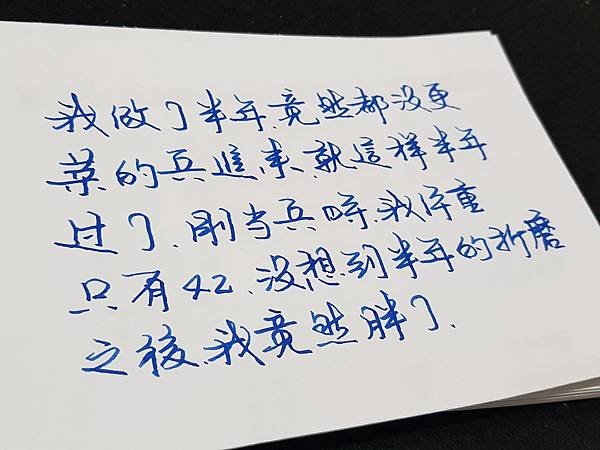 我做了半年.竟然都沒更
菜的兵進來.就這样半年
过了.剛当兵時.我体重
只有42.沒想到半年的折磨
之後.我竟然胖了.